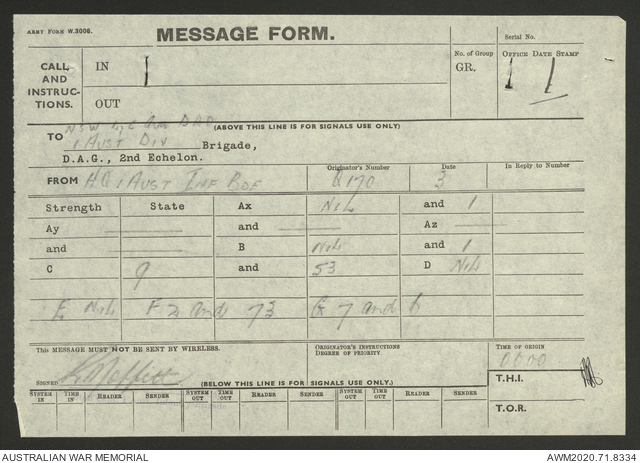 ARMY FORM W.3006.
MESSAGE FORM.
Serial No.
CALL AND INSTRUCTIONS.
IN
OUT
No. of Group
GR.
OFFICE DATE STAMP
(ABOVE THIS LINE IS FOR SIGNALS USE ONLY)
TO
1 AUST DIV Brigade,
D.A.G., 2nd Echelon.
FROM HQ 1 AUST INF BDE
Originator's Number
Q170
Date
3
In Reply to Number
Strength State Ax NIL and 1
Ay and Az
and B NIL and 1
C 9 and 53 D NIL
E NIL F 2 and 73 G 7 and 6
This MESSAGE MUST NOT BE SENT BY WIRELESS.
ORIGINATOR'S INSTRUCTIONS
DEGREE OF PRIORITY.
TIME OF ORIGIN
SIGNED
(BELOW THIS LINE IS FOR SIGNALS USE ONLY.)
T.H.I.
SYSTEM IN TIME IN READER SENDER SYSTEM OUT TIME OUT READER SENDER SYSTEM OUT TIME OUT READER SENDER
T.O.R.
AUSTRALIAN WAR MEMORIAL
AWM2020.71.8334